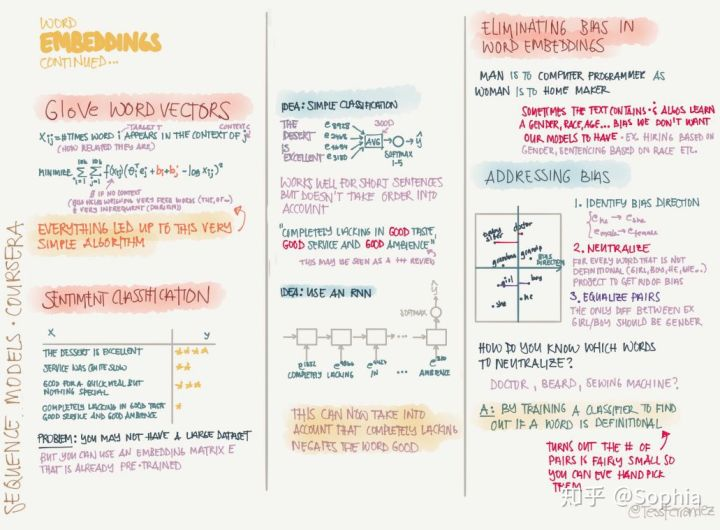 WORD
EMBEDDINGS
CONTINUED...
GloVe WORD VECTORS
TARGET t
CONTEXT c
Xij = #TIMES WORD i APPEARS IN THE CONTEXT OF j
(HOW RELATED THEY ARE)
MINIMIZE
EVERYTHING LED UP TO THIS VERY
SIMPLE ALGORITHM
SENTIMENT CLASSIFICATION
X y
THE DESSERT IS EXCELLENT ★★★★
SERVICE WAS QUITE SLOW ★★
GOOD FOR A QUICK MEAL BUT
NOTHING SPECIAL ★★★
COMPLETELY LACKING IN GOOD TASTE ★
GOOD SERVICE AND GOOD AMBIENCE
PROBLEM: YOU MAY NOT HAVE A LARGE DATASET
BUT YOU CAN USE AN EMBEDDING MATRIX E
THAT IS ALREADY PRE-TRAINED
SEQUENCE MODELS · COURSERA
IDEA: SIMPLE CLASSIFICATION
THE e8928
DESSERT e2468
IS e4694
EXCELLENT e3180
AVG
300D
ŷ
SOFTMAX
1-5
WORKS WELL FOR SHORT SENTENCES
BUT DOESN'T TAKE ORDER INTO
ACCOUNT
"COMPLETELY LACKING IN GOOD TASTE,
GOOD SERVICE AND GOOD AMBIENCE"
THIS MAY BE SEEN AS A +++ REVIEW
IDEA: USE AN RNN
ŷ
SOFTMAX
e1852 e4966 e4427 ... e330
COMPLETELY LACKING IN ... AMBIENCE
THIS CAN NOW TAKE INTO
ACCOUNT THAT COMPLETELY LACKING
NEGATES THE WORD GOOD
ELIMINATING BIAS IN
WORD EMBEDDINGS
MAN IS TO COMPUTER PROGRAMMER AS
WOMAN IS TO HOME MAKER
SOMETIMES THE TEXT CONTAINS & ALGOS LEARN
A GENDER, RACE, AGE... BIAS WE DON'T WANT
OUR MODELS TO HAVE · EX. HIRING BASED ON
GENDER, SENTENCING BASED ON RACE ETC.
ADDRESSING BIAS
doctor
baby
sitter
grandma
grandpa
BIAS
DIRECTION
girl
boy
she
he
1. IDENTIFY BIAS DIRECTION
ehe → eshe
emale → efemale
2. NEUTRALIZE
FOR EVERY WORD THAT IS NOT
DEFINITIONAL (GIRL, BOY, HE, SHE...)
PROJECT TO GET RID OF BIAS
3. EQUALIZE PAIRS
THE ONLY DIFF BETWEEN EX
GIRL/BOY SHOULD BE GENDER
HOW DO YOU KNOW WHICH WORDS
TO NEUTRALIZE?
DOCTOR, BEARD, SEWING MACHINE?
A: BY TRAINING A CLASSIFIER TO FIND
OUT IF A WORD IS DEFINITIONAL
TURNS OUT THE # OF
PAIRS IS FAIRLY SMALL SO
YOU CAN EVE HAND PICK
THEM
知乎 @Sophia
@TessFerrandez